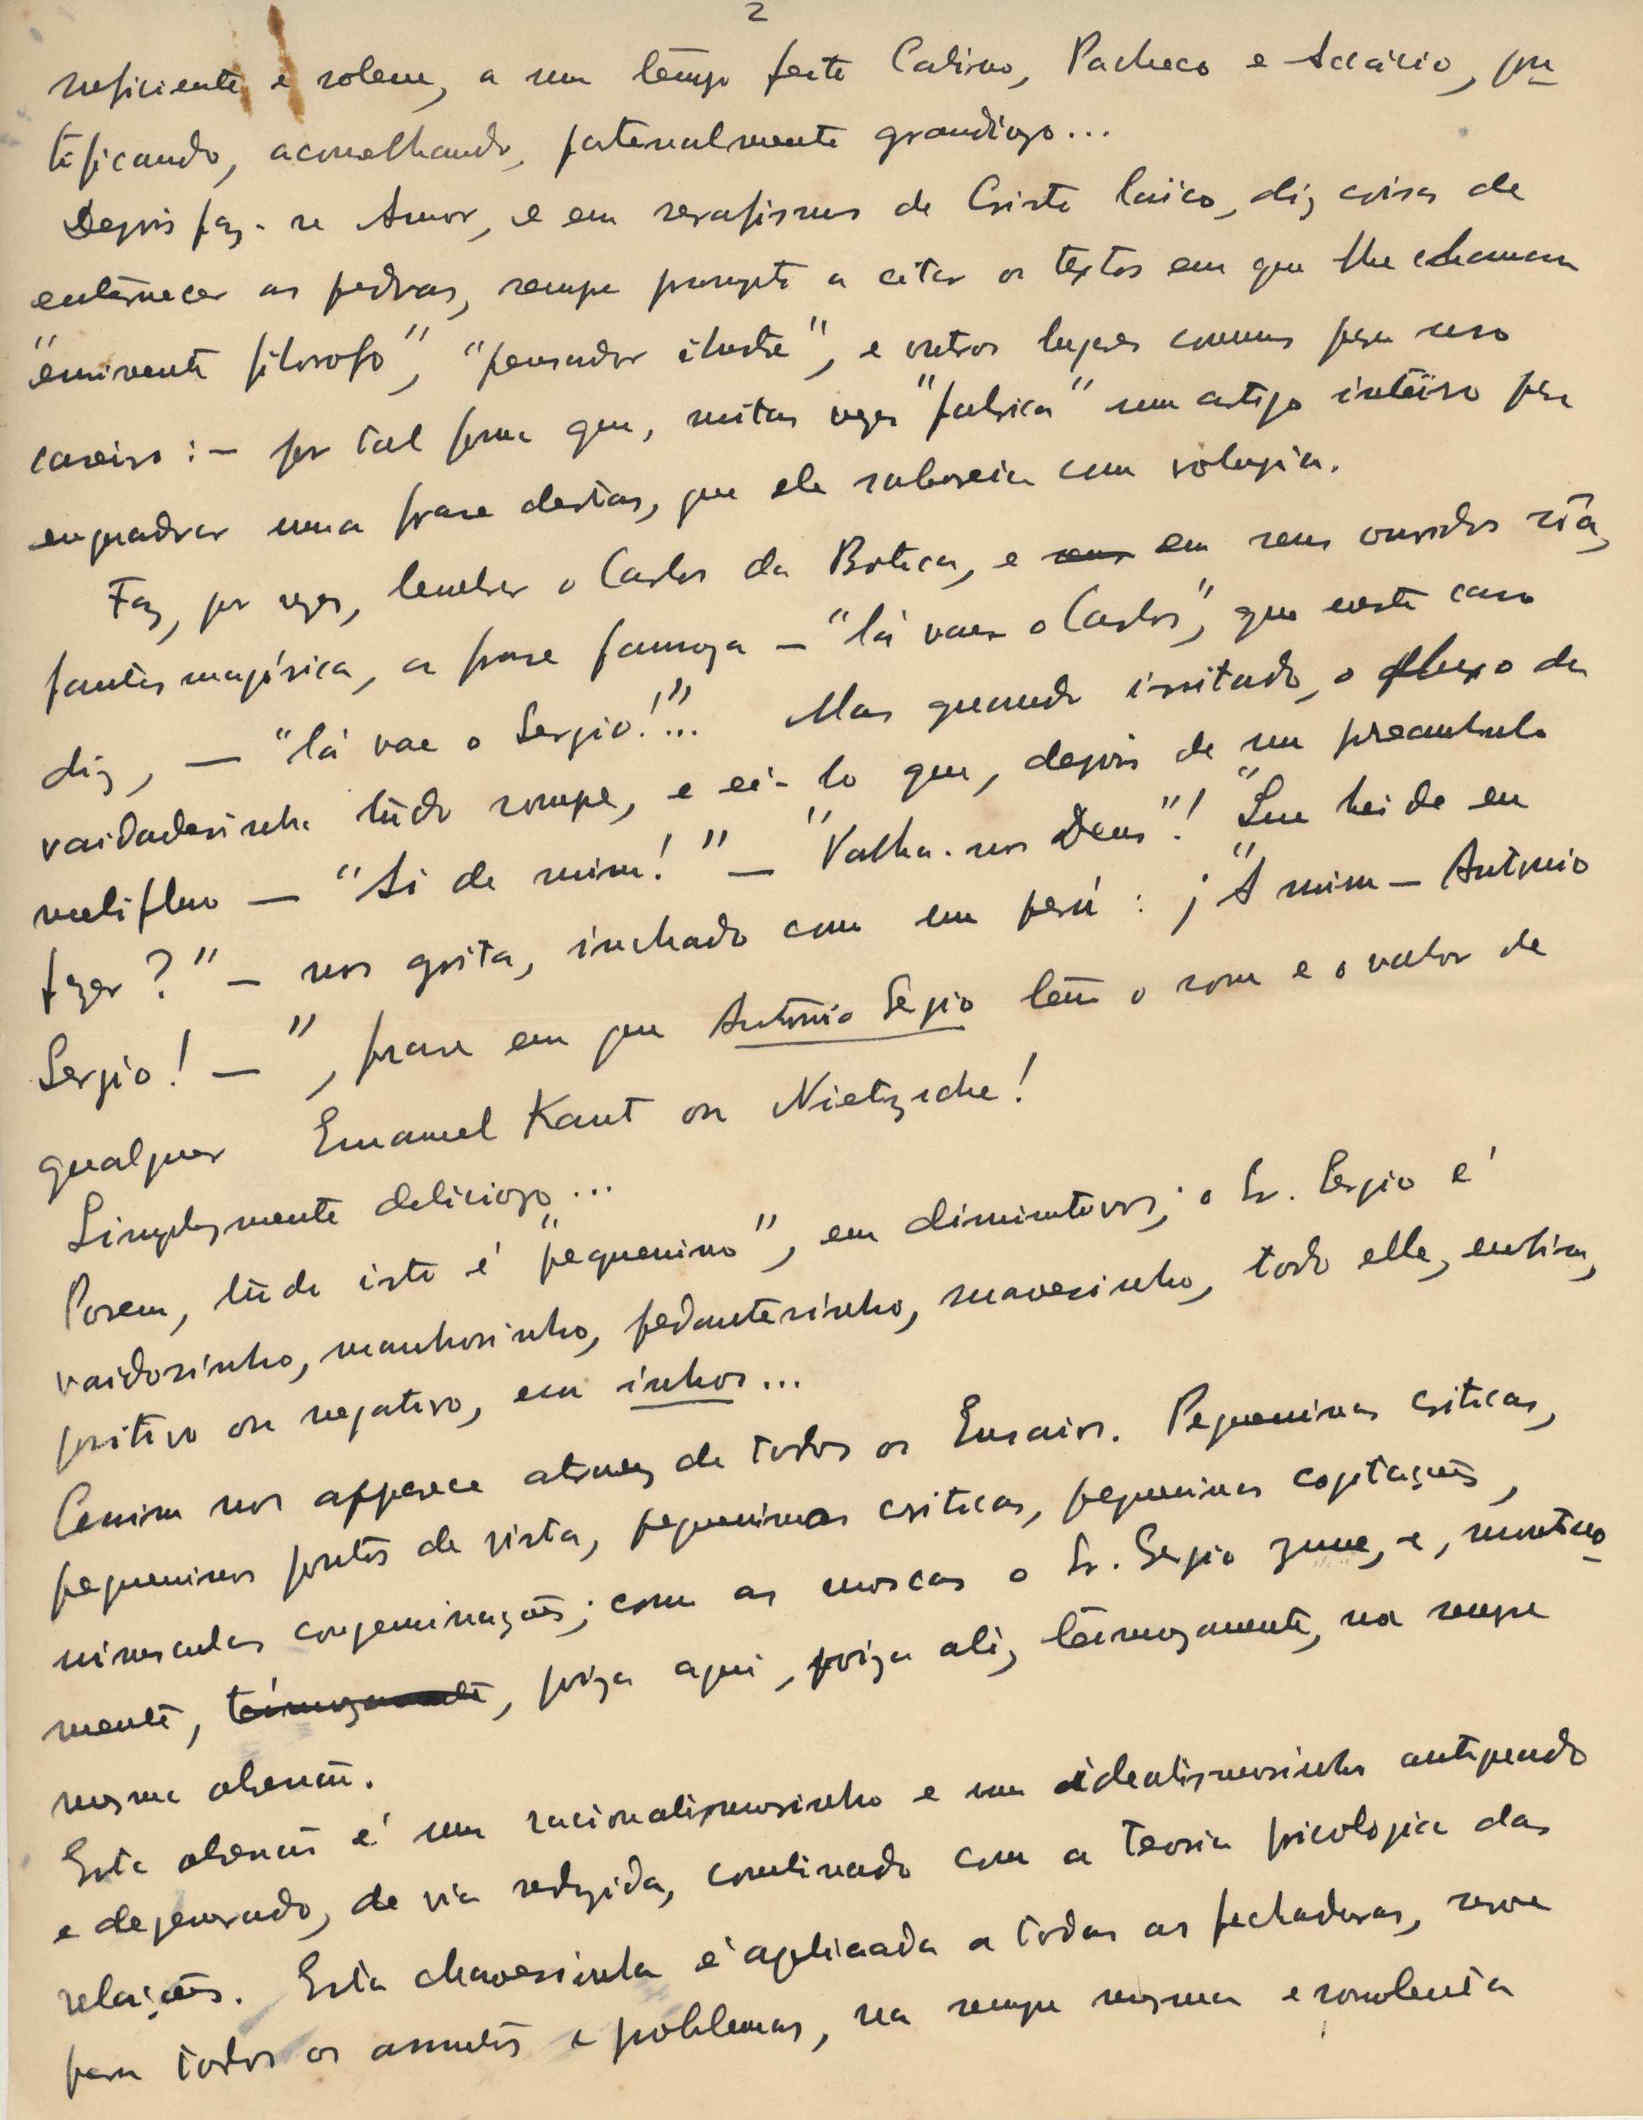 2
suficiente e solene, a um tempo feito Calino, Pacheco e Accácio, pon-
tificando, aconselhando, paternalmente grandiozo...
Depois faz-se Amor, e em serafismos de Cristo laïco, diz coisas de
enternecer as pedras, sempre prompto a citar os textos em que lhe chamam
"eminente filosofo", "pensador ilustre", e outros lugares comuns para uso
caseiro: – por tal forma que, muitas vezes "fabrica" um artigo inteiro para
enquadrar uma frase destas, que ele saboreia com volupia.
Faz, por vezes, lembrar o Carlos da Botica, e em seus ouvidos sôa,
fantasmagórica, a frase famoza – "lá vae o Carlos", que neste caso
diz, – "lá vae o Sergio!"... Mas quando irritado, o fluxo da
vaidadesinha tudo rompe, e ei-lo que, depois de um preambulo
melifluo – "Ai de mim!" – "Valha-nos Deus"! "Que hei de eu
fazer?" – nos grita, inchado como um perú: ¡"A mim – António
Sergio! – ", frase em que António Sergio tem o som e o valor de
qualquer Emanuel Kant ou Nietzsche!
Simplesmente deliciozo...
Porem, tudo isto é "pequenino", em diminutivos; o Sr. Sergio é
vaidosinho, manhosinho, pedantesinho, suavesinho, todo elle, emfim,
positivo ou negativo, em inhos...
Assim nos apparece atravez de todos os Ensaios. Pequeninas criticas,
pequeninos pontos de vista, pequeninas criticas, pequeninas cogitações,
minusculas congeminações; como as moscas o Sr. Sergio zune, e, monotona-
mente, teimozamente, poiza aqui, poiza ali, teimozamente, na sempre
mesma obsessão.
Esta obsessão é um racionalismosinho e um idealismosinho antiquado
e degenerado, de via reduzida, combinado com a teoria psicologica das
relações. Esta chavesinha é aplicada a todas as fechaduras, serve
para todos os assuntos e problemas, na sempre mesma e sonolenta